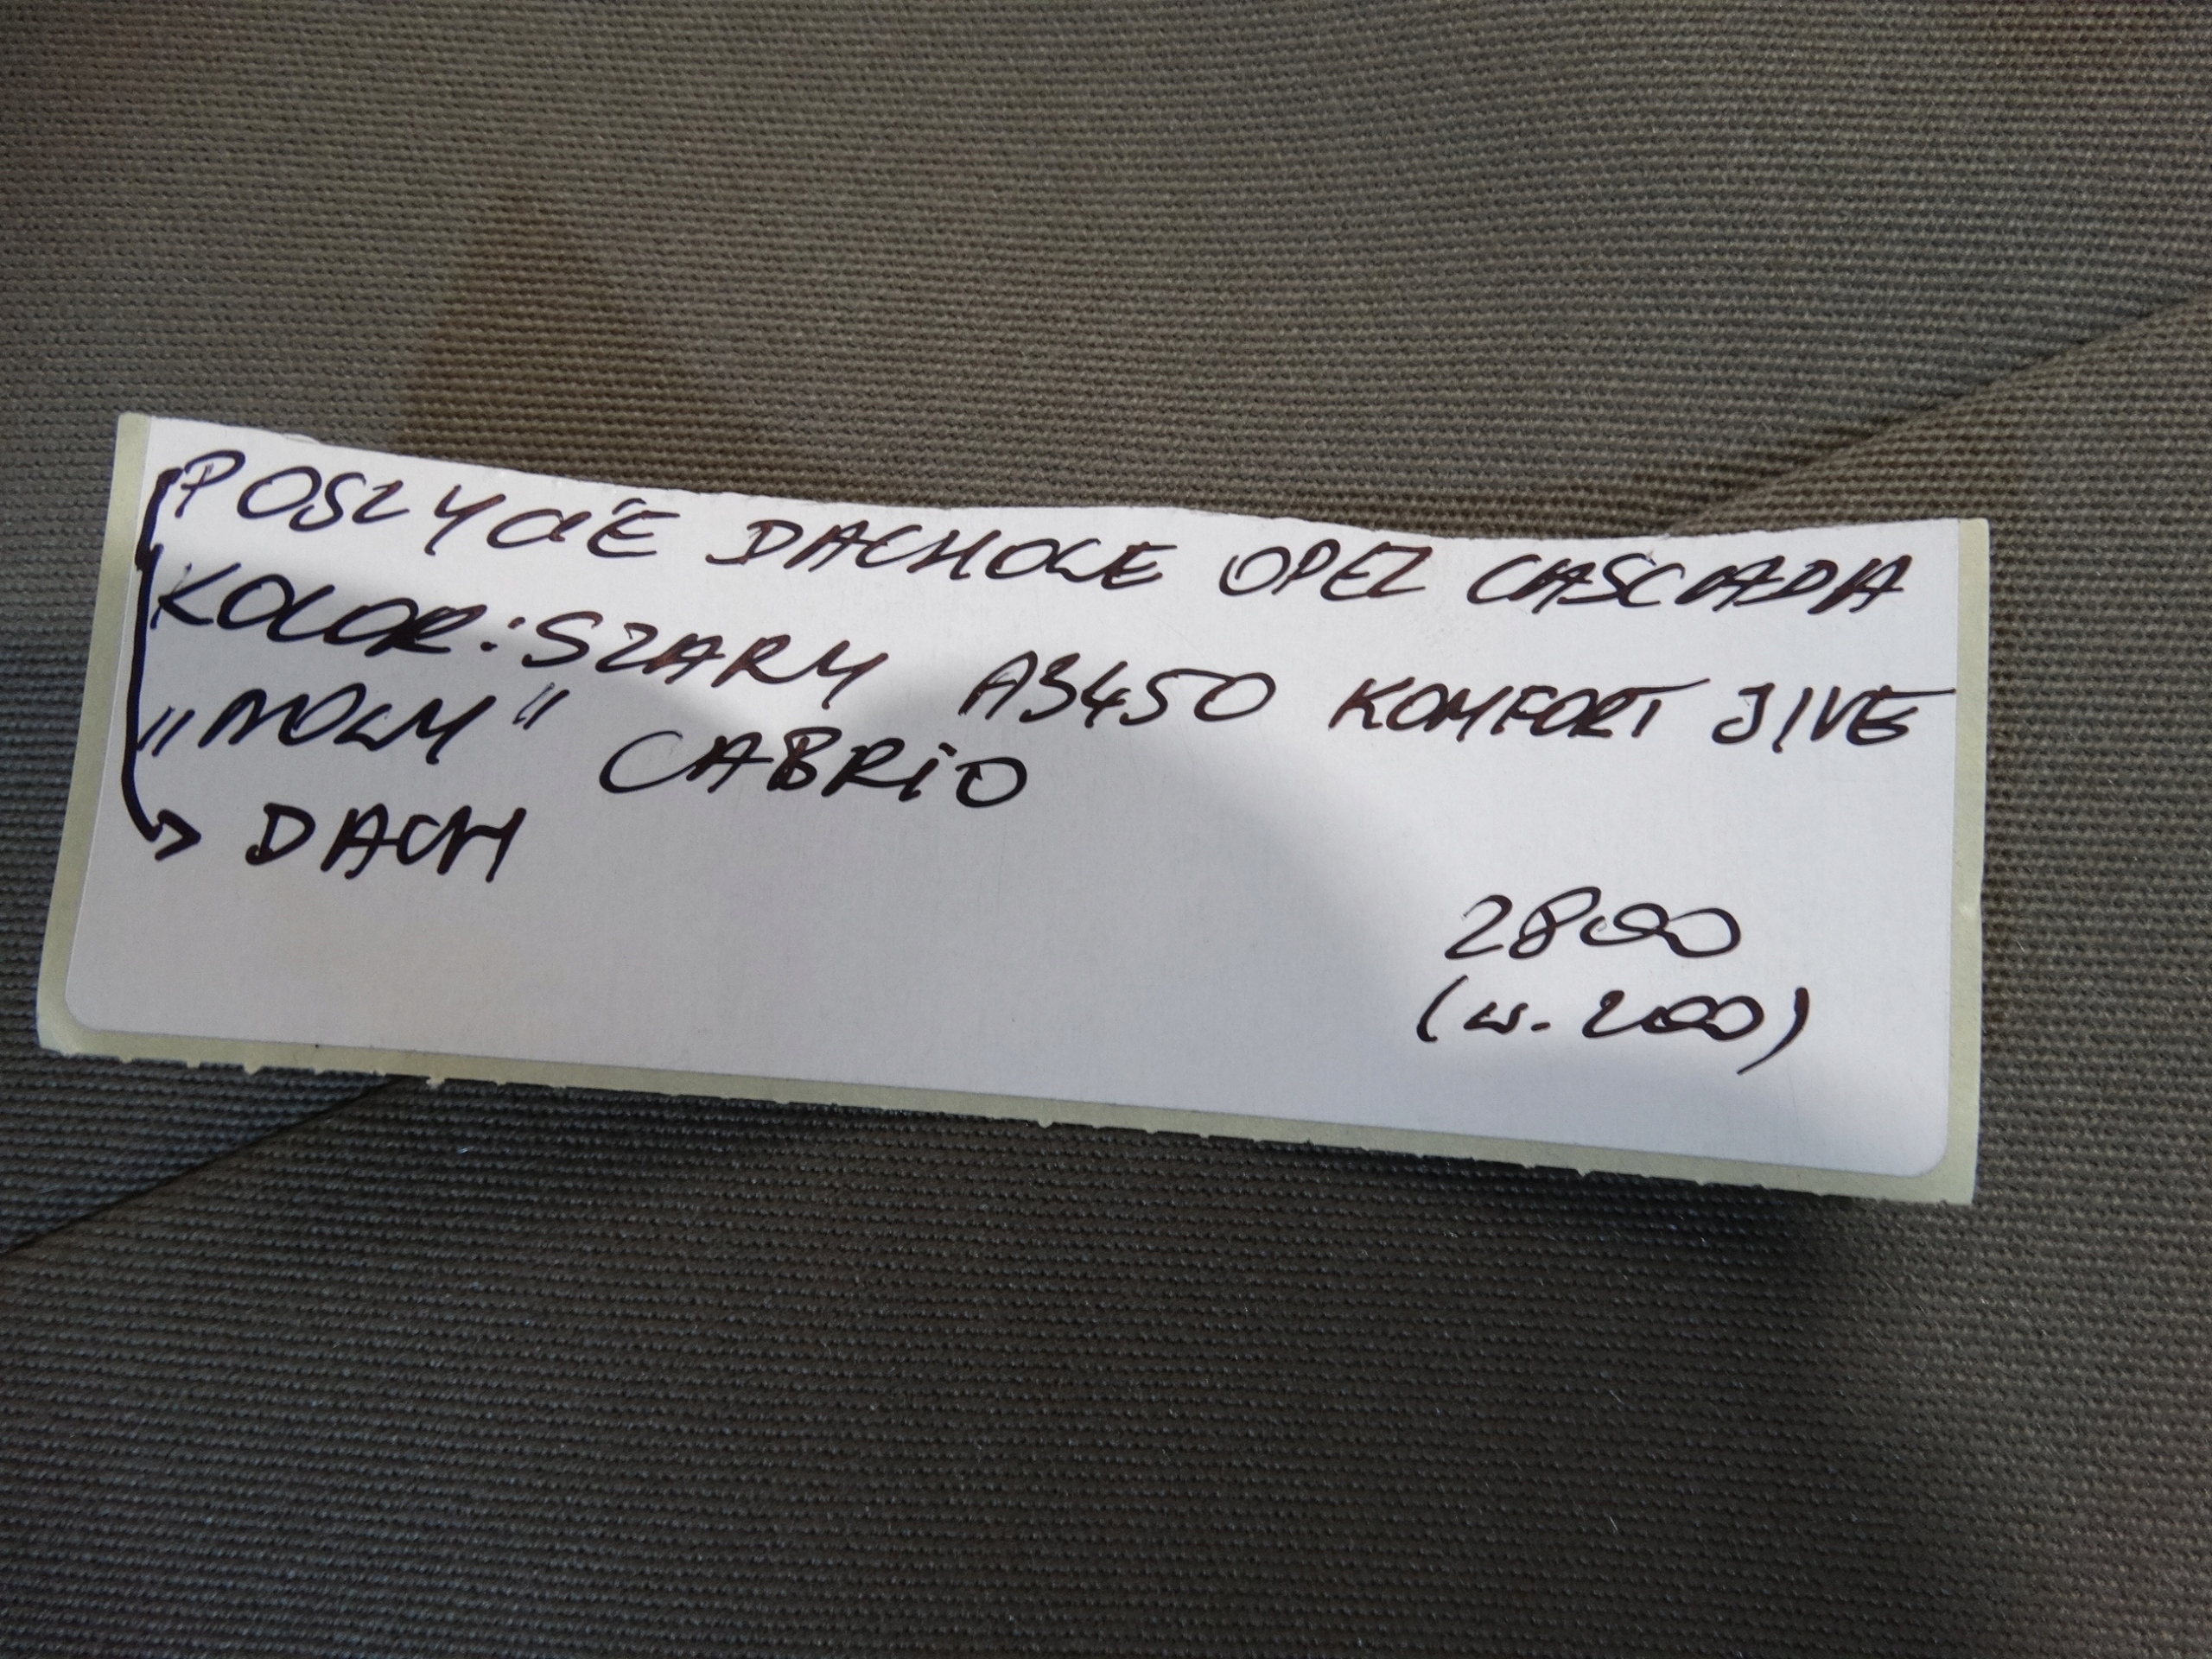 POSZYCIE DACHOWE OPEL CASCADA
KOLOR: SZARY A3450 KOMFORT JIVE
„NOWY" CABRIO
→ DACH
2800
(w. 200)